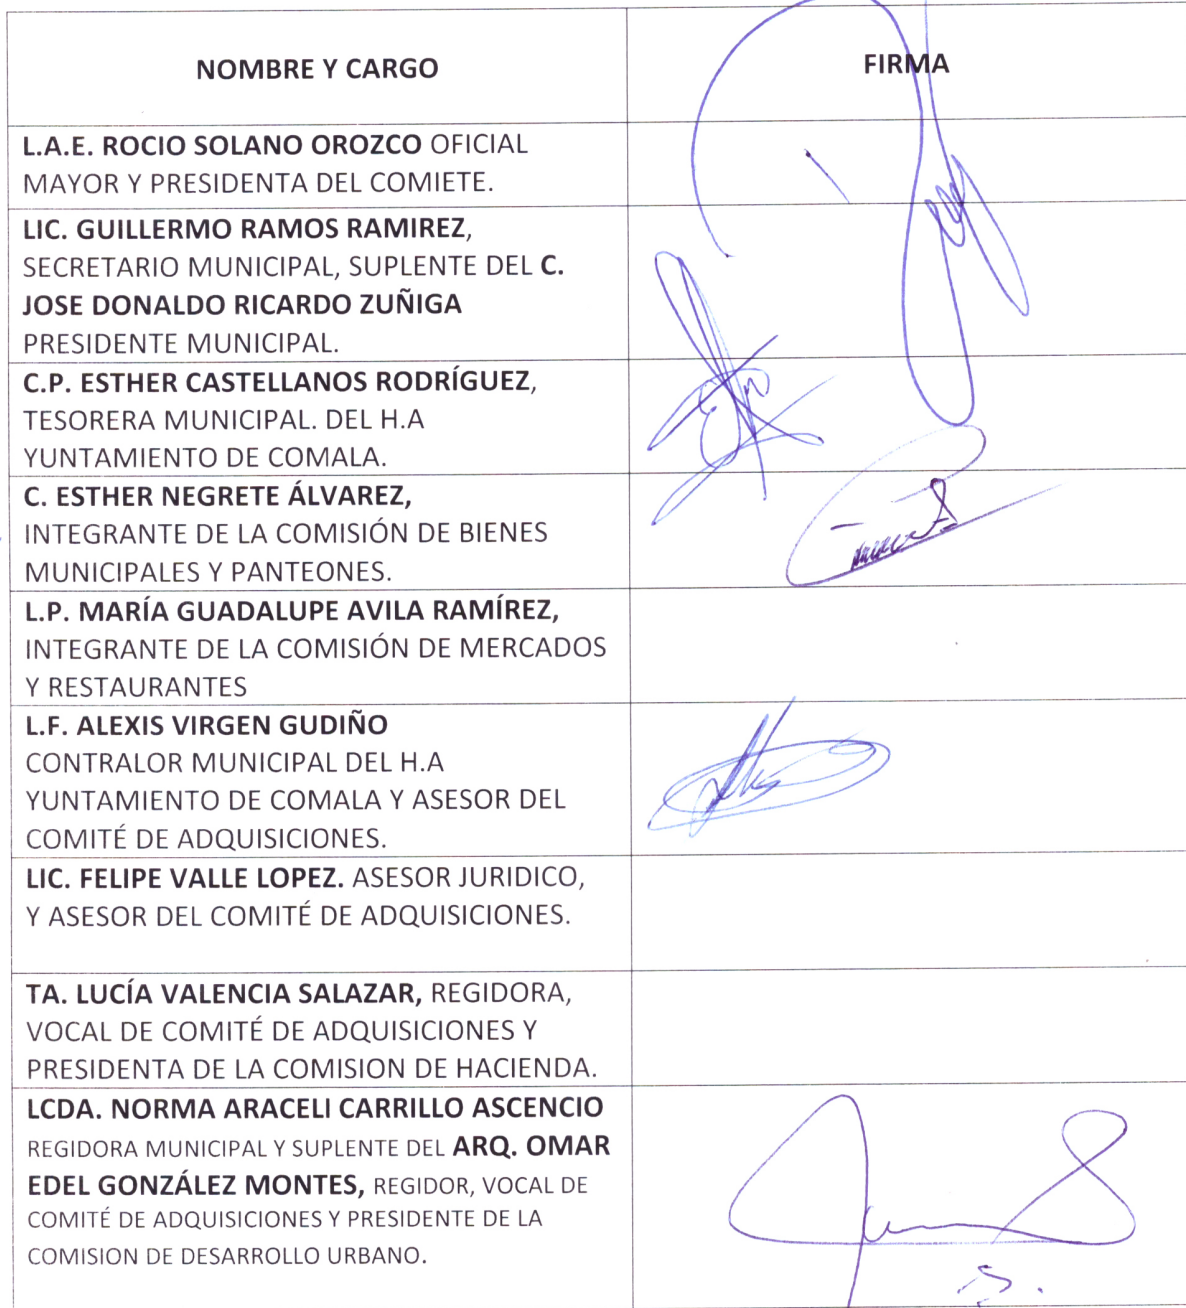 NOMBRE Y CARGO FIRMA
L.A.E. ROCIO SOLANO OROZCO OFICIAL
MAYOR Y PRESIDENTA DEL COMIETE.
LIC. GUILLERMO RAMOS RAMIREZ,
SECRETARIO MUNICIPAL, SUPLENTE DEL C.
JOSE DONALDO RICARDO ZUÑIGA
PRESIDENTE MUNICIPAL.
C.P. ESTHER CASTELLANOS RODRÍGUEZ,
TESORERA MUNICIPAL. DEL H.A
YUNTAMIENTO DE COMALA.
C. ESTHER NEGRETE ÁLVAREZ,
INTEGRANTE DE LA COMISIÓN DE BIENES
MUNICIPALES Y PANTEONES.
L.P. MARÍA GUADALUPE AVILA RAMÍREZ,
INTEGRANTE DE LA COMISIÓN DE MERCADOS
Y RESTAURANTES
L.F. ALEXIS VIRGEN GUDIÑO
CONTRALOR MUNICIPAL DEL H.A
YUNTAMIENTO DE COMALA Y ASESOR DEL
COMITÉ DE ADQUISICIONES.
LIC. FELIPE VALLE LOPEZ. ASESOR JURIDICO,
Y ASESOR DEL COMITÉ DE ADQUISICIONES.
TA. LUCÍA VALENCIA SALAZAR, REGIDORA,
VOCAL DE COMITÉ DE ADQUISICIONES Y
PRESIDENTA DE LA COMISION DE HACIENDA.
LCDA. NORMA ARACELI CARRILLO ASCENCIO
REGIDORA MUNICIPAL Y SUPLENTE DEL ARQ. OMAR
EDEL GONZÁLEZ MONTES, REGIDOR, VOCAL DE
COMITÉ DE ADQUISICIONES Y PRESIDENTE DE LA
COMISION DE DESARROLLO URBANO.